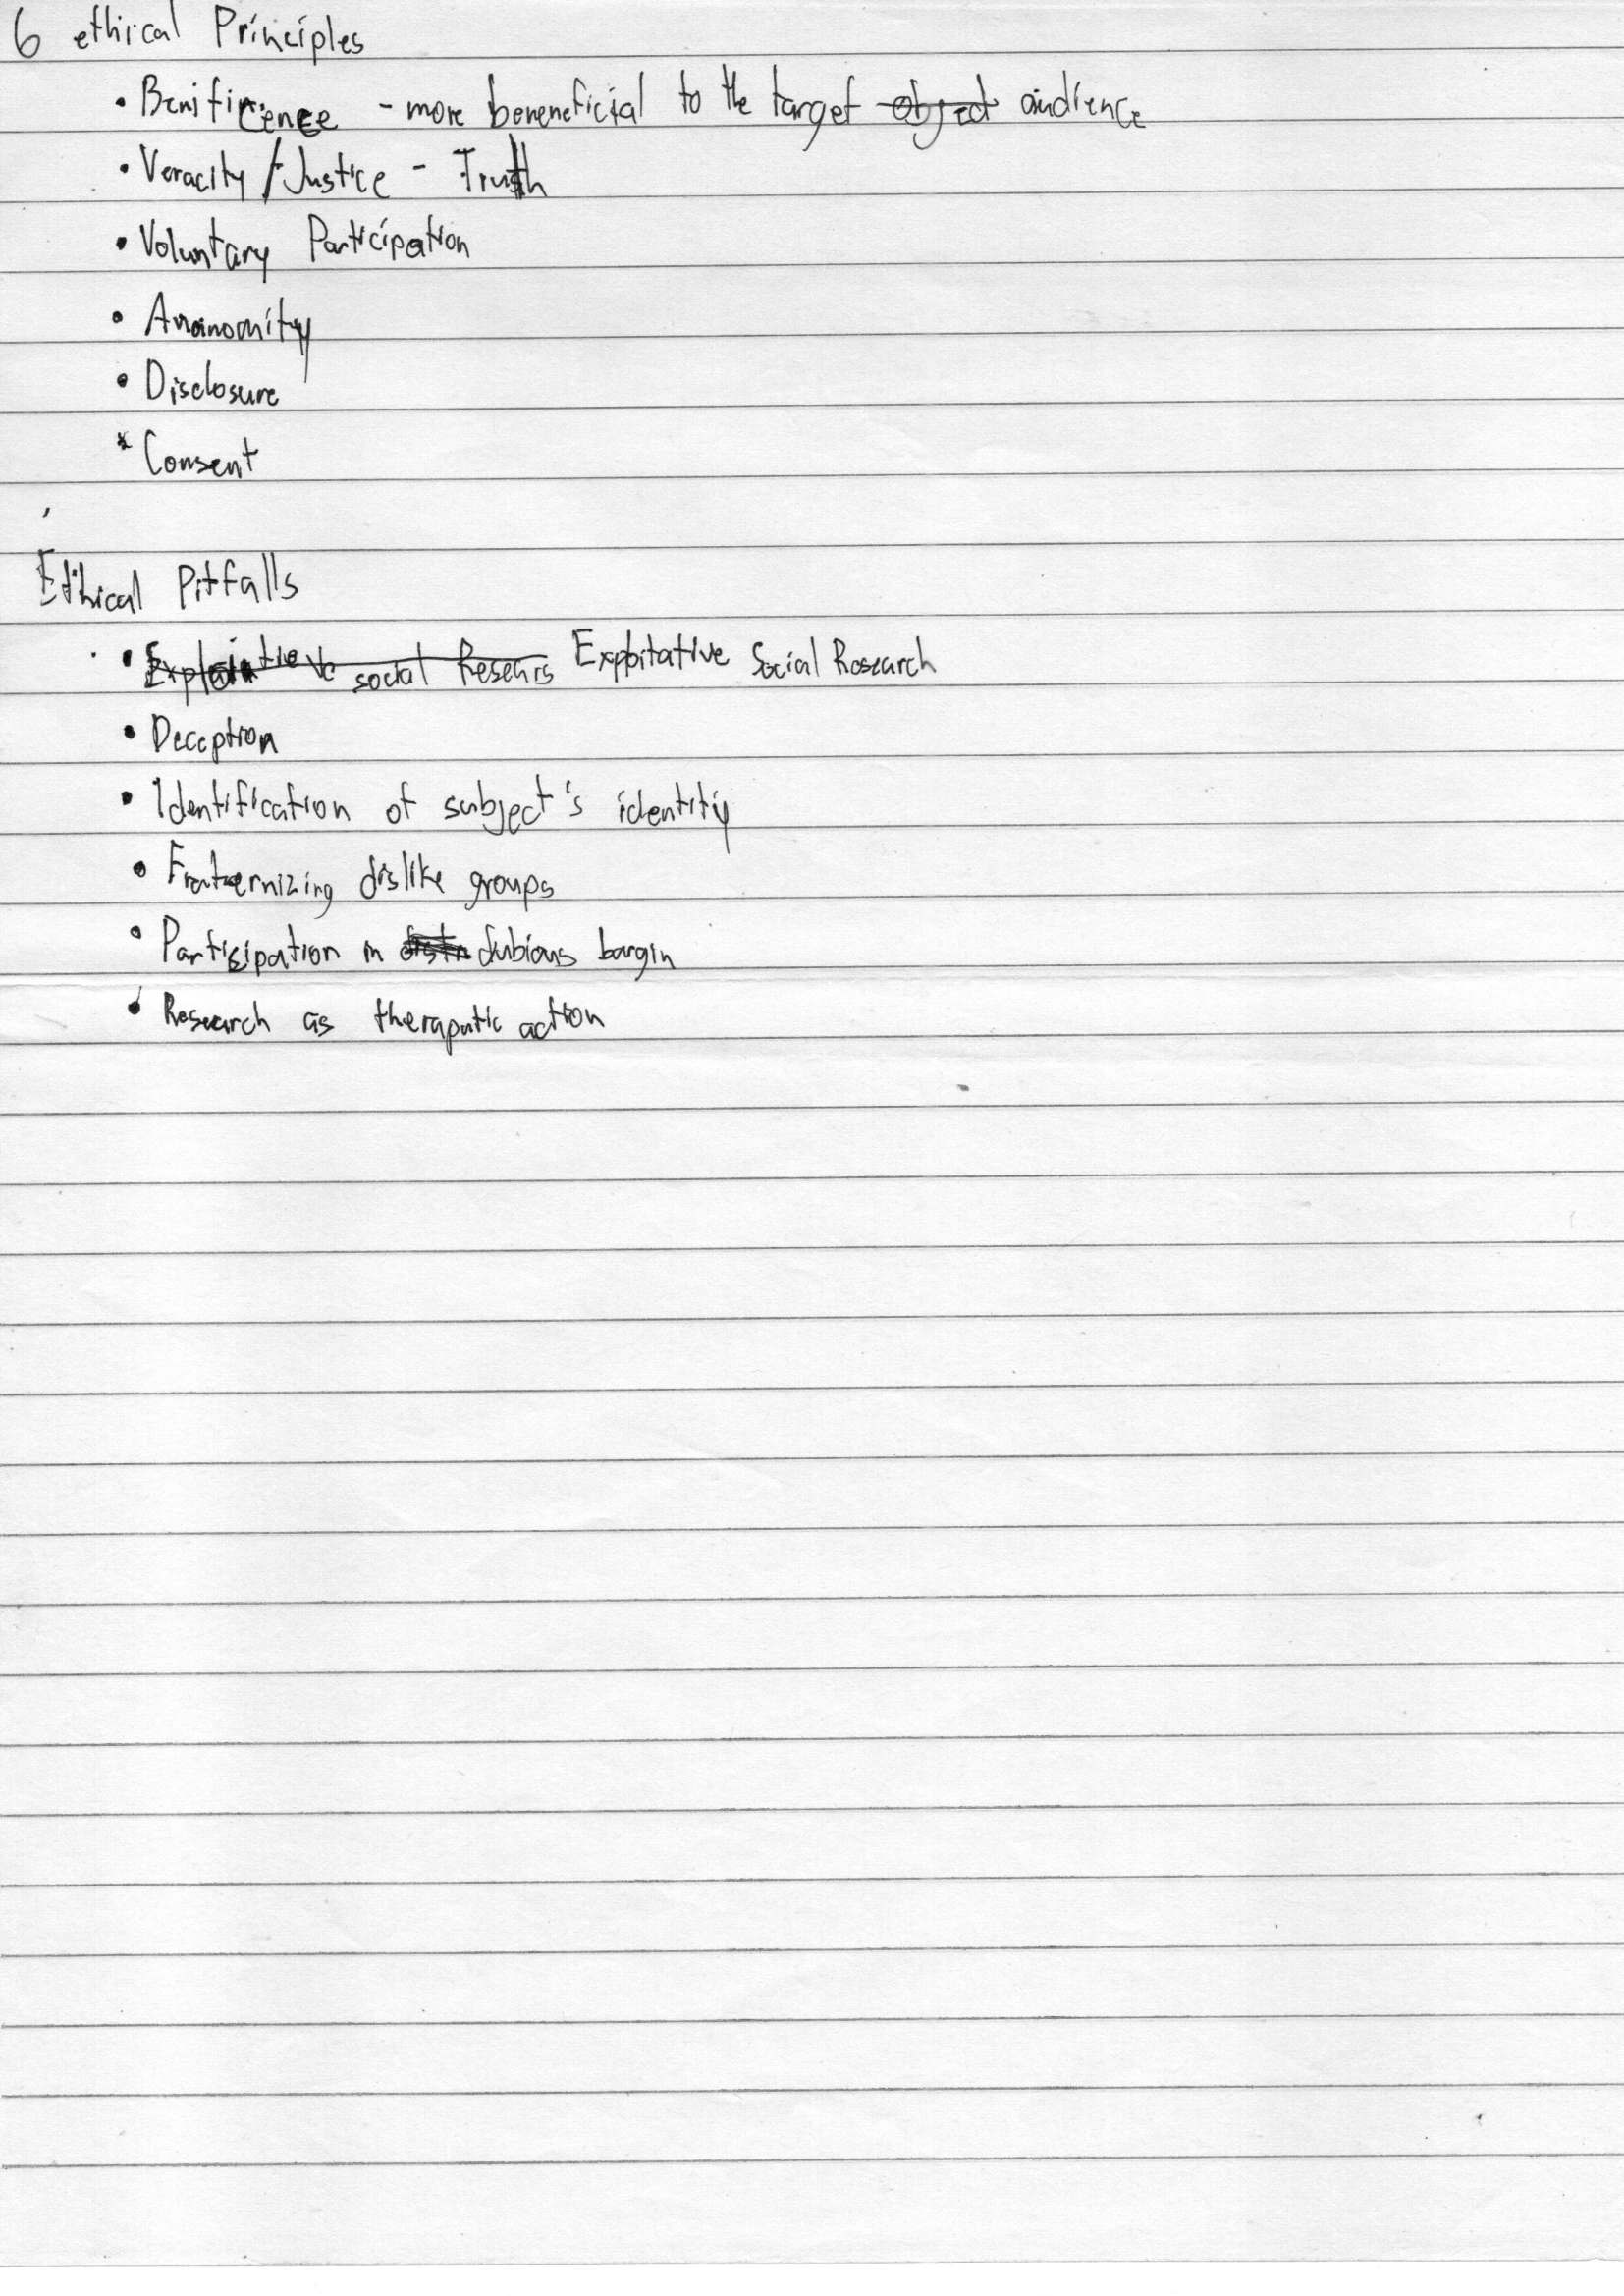 6 ethical Principles
• Benificence - more beneneficial to the target object audience
• Veracity / Justice - Truth
• Voluntary Participation
• Ananomity
• Disclosure
* Consent
Ethical Pitfalls
• social Exploitative Social Research
• Deception
• Identification of subject's identity
• Fraternizing dislike groups
• Partisipation in dubious bargin
• Research as theraputic action